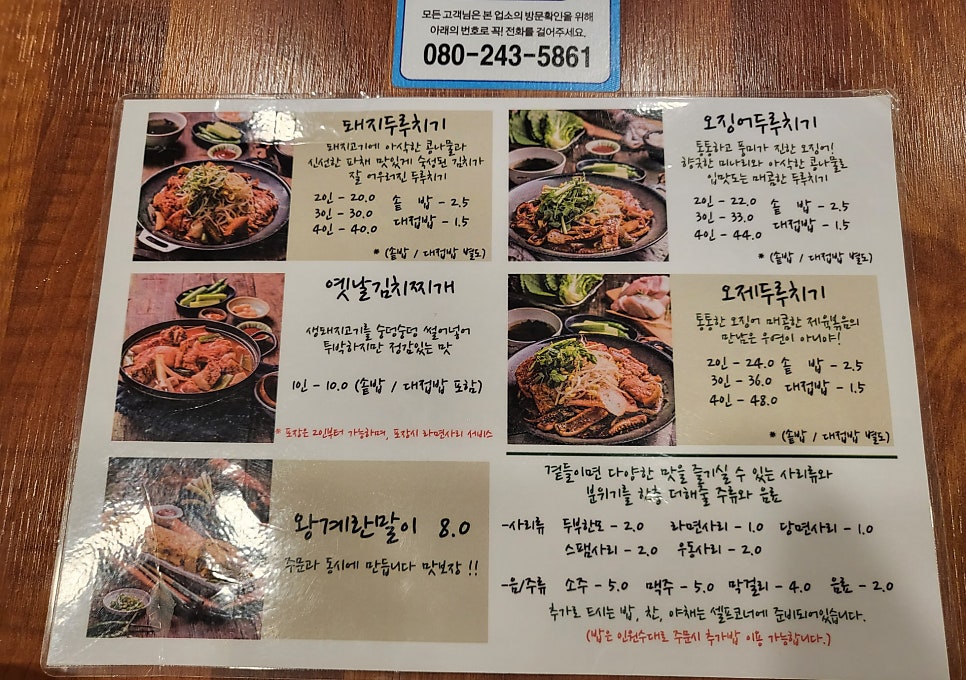 모든 고객님은 본 업소의 방문확인을 위해
아래의 번호로 꼭! 전화를 걸어주세요.
080-243-5861
돼지두루치기
돼지고기에 아삭한 콩나물과
신선한 파채 맛있게 숙성된 김치가
잘 어우러진 두루치기
2인 - 20.0 솥 밥 - 2.5
3인 - 30.0 대접밥 - 1.5
4인 - 40.0
* (솥밥 / 대접밥 별도)
오징어두루치기
통통하고 풍미가 진한 오징어!
향긋한 미나리와 아삭한 콩나물로
입맛도는 매콤한 두루치기
2인 - 22.0 솥 밥 - 2.5
3인 - 33.0 대접밥 - 1.5
4인 - 44.0
* (솥밥 / 대접밥 별도)
옛날김치찌개
생돼지고기를 숭덩숭덩 썰어넣어
투박하지만 정감있는 맛
1인 - 10.0 (솥밥 / 대접밥 포함)
* 포장은 2인부터 가능하며, 포장시 라면사리 서비스
오제두루치기
통통한 오징어 매콤한 제육볶음의
만남은 우연이 아니야!
2인 - 24.0 솥 밥 - 2.5
3인 - 36.0 대접밥 - 1.5
4인 - 48.0
* (솥밥 / 대접밥 별도)
왕계란말이 8.0
주문과 동시에 만듭니다 맛보장 !!
곁들이면 다양한 맛을 즐기실 수 있는 사리류와
분위기를 한층 더해줄 주류와 음료
-사리류 두부한모 - 2.0 라면사리 - 1.0 당면사리 - 1.0
스팸사리 - 2.0 우동사리 - 2.0
-음/주류 소주 - 5.0 맥주 - 5.0 막걸리 - 4.0 음료 - 2.0
추가로 드시는 밥, 찬, 야채는 셀프코너에 준비되어있습니다.
(밥은 인원수대로 주문시 추가밥 이용 가능합니다.)